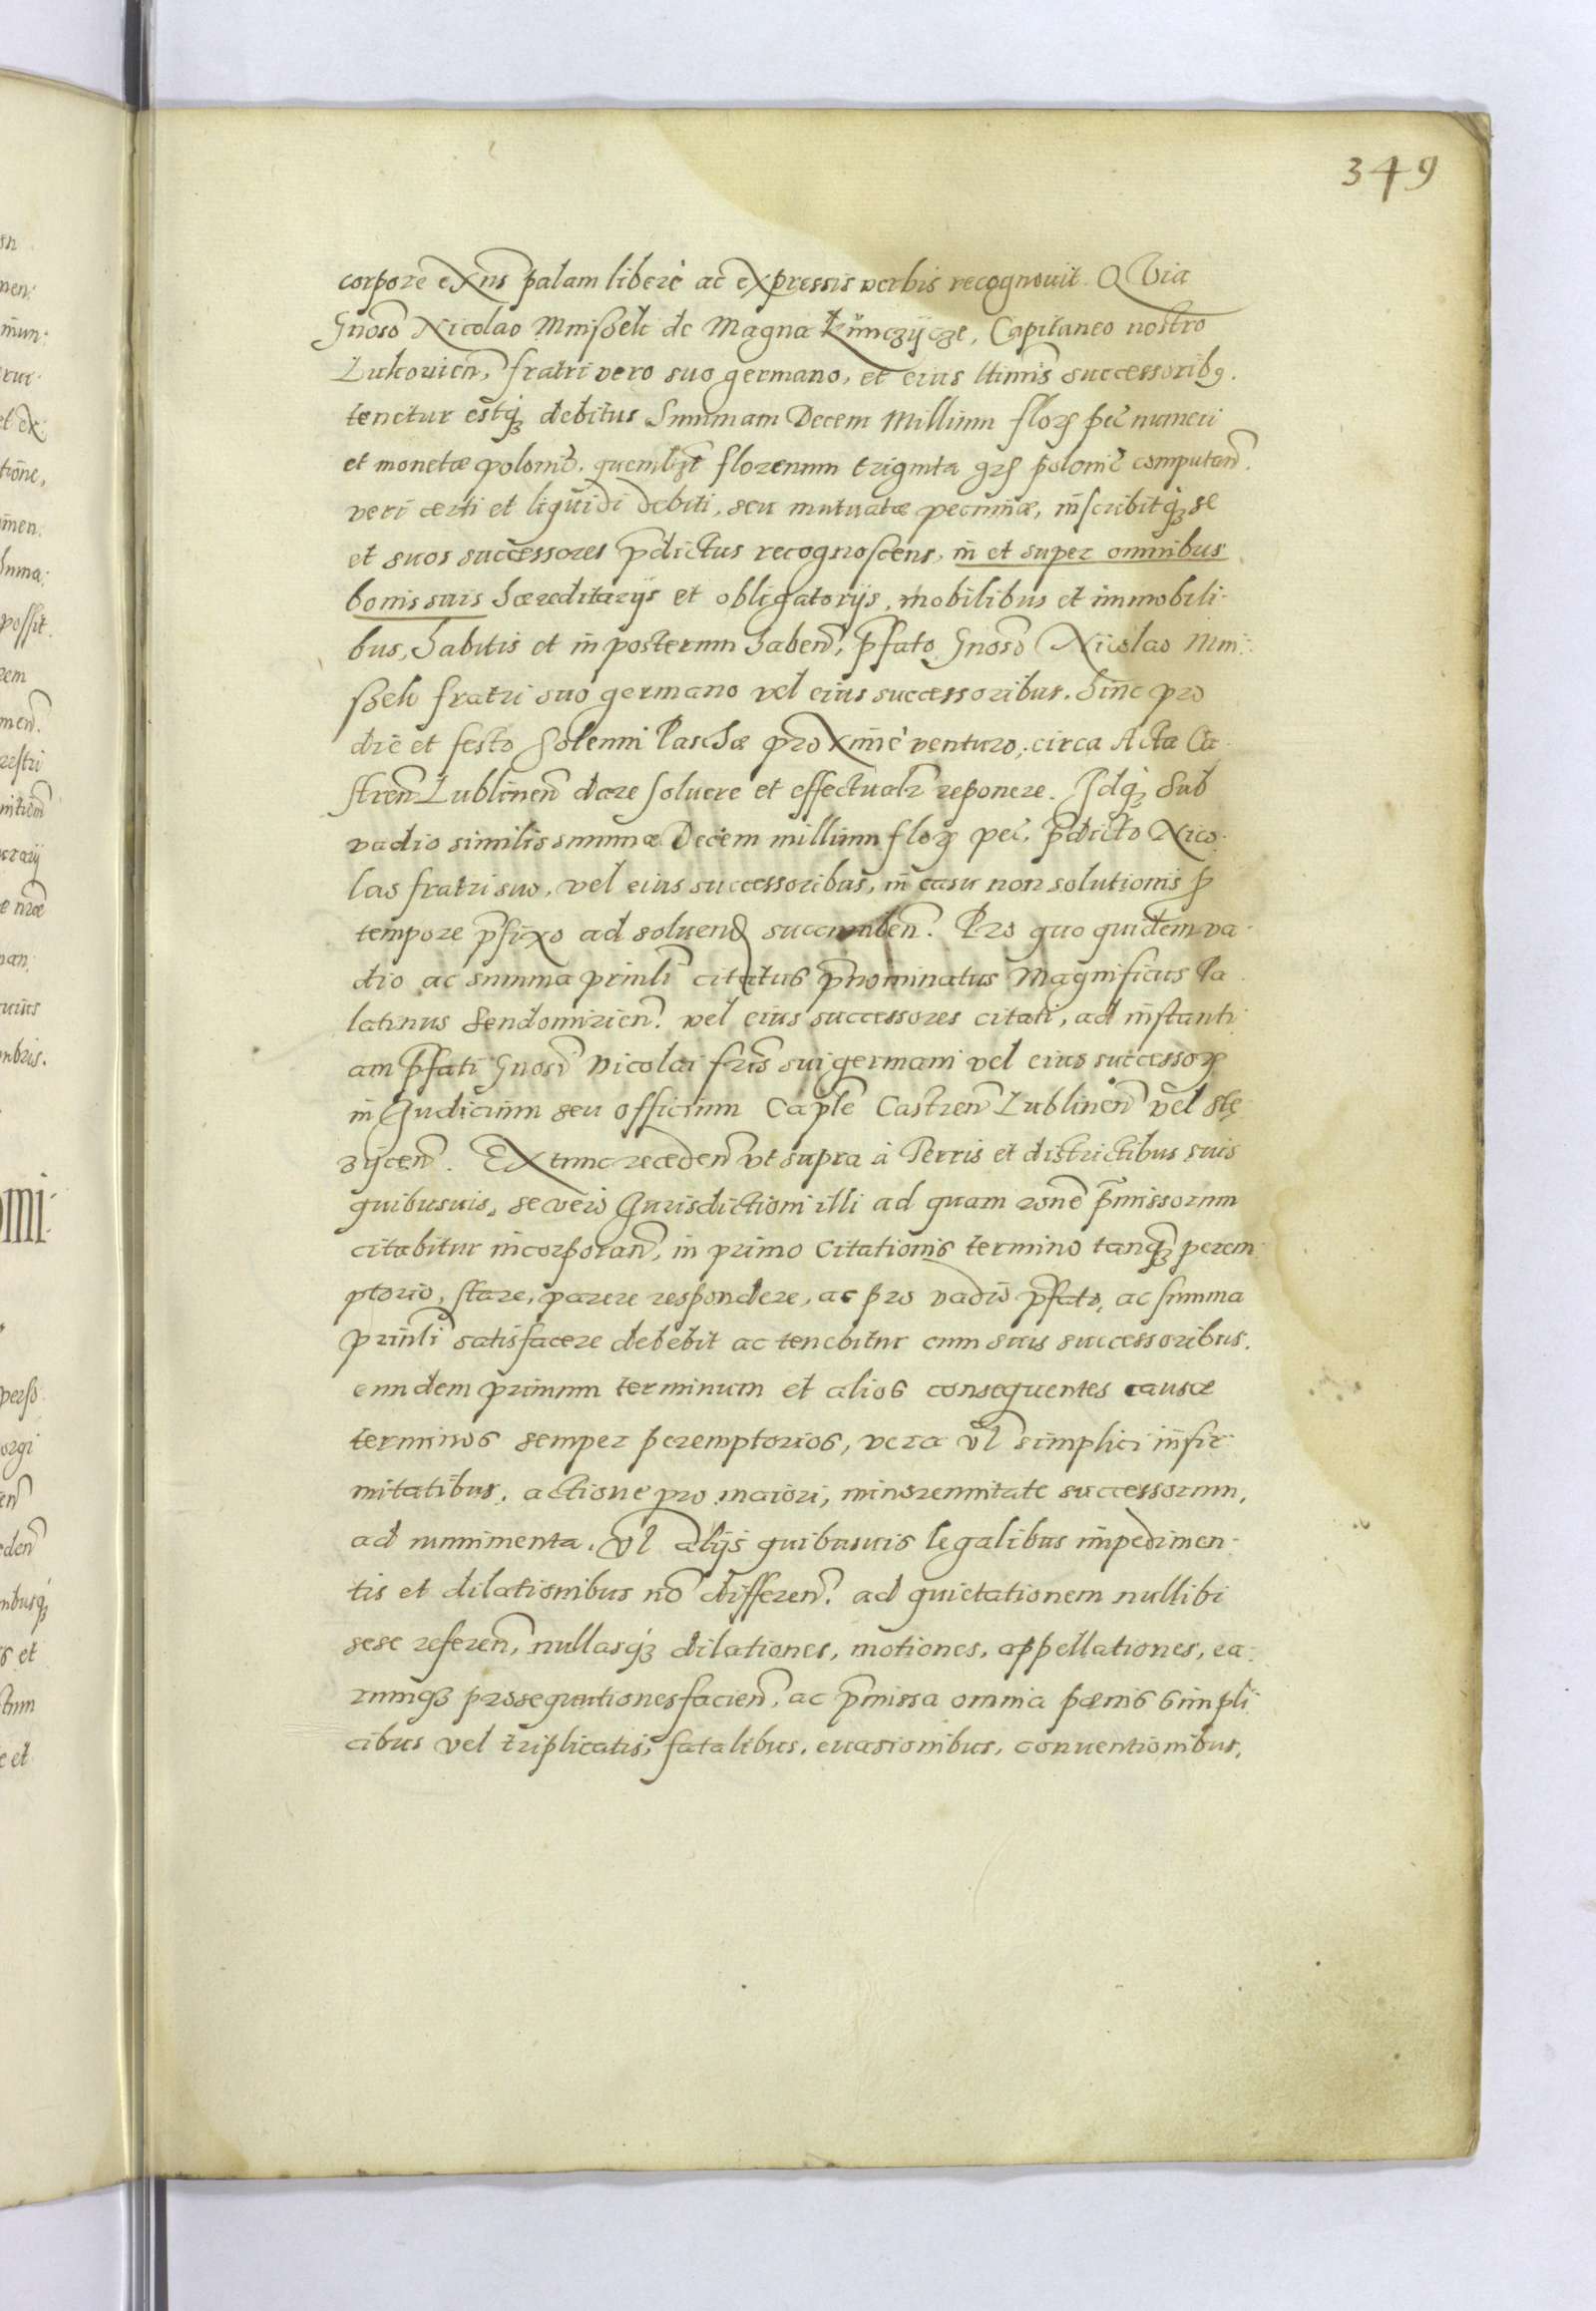 349
corpore exn̄s palam liberè ac expressis verbis recognouit. QVia
Gnoso Nicolao Mniſzek de Magna Kunczycze, Capitaneo nostro
Lukouien̄, fratri vero suo germano, et eius ltimis successoribꝯ.
tenetur estq́ꝫ debitus Summam Decem Millium floꝝ pec̄ numeri
et monetæ polonic̄. quemlibꝫt florenum triginta gꝛꝭ polonic̄ computan̄.
veri certi et liquidi debiti, seu mutuatæ pecuniæ, inscribitq́ꝫ se
et suos successores p̄dictus recognoſcens, in et super omnibus
bonis suis hæreditarijs et obligatorijs, mobilibus et immobili-
bus, habitis et in posterum haben̄, p̄fato Gnoso Nicolao Mni-
ſzek fratri suo germano vel eius successoribus. hinc pro
die et festo ſolenni Paschæ proximè venturo, circa Acta Ca-
ſtren̄ Lublinen̄ dare ſoluere et effectualr̄ reponere. Idq́ꝫ sub
vadio similis summæ Decem millium floꝝ pec̄. p̄dicto Nico-
lao fratri suo, vel eius successoribus, in casu non solutionis p̄
tempore p̄fixo ad soluend succumben̄. Pro quo quidem va-
dio ac summa prin̄li citatus p̄nominatus Magnificus Pa-
latinus Sendomirien̄. vel eius successores citati, ad inſtanti-
am p̄fati Gnosi Nicolai fris̄ sui germani vel eius successoꝝ
in Iudicium seu officium Cap̄le Castren̄ Lublinen̄ vel Stę-
zycen̄. Ex tunc receden̄ vt supra à Terris et districtibus suis
quibusuis, se verò Iurisdictioni illi ad quam ron̄e p̄missorum
citabitur incorporan̄, in primo citationis termino tanqꝫ perem-
ptorio, ſtare, parere respondere, ac pro vadio p̄fato, ac ſumma
prin̄li satisfacere debebit ac tenebitur cum suis successoribus.
eundem primum terminum et alios consequentes causæ
terminos semper peremptorios, vera vl̄ simplici infir-
mitatibus, actione pro maiori, minorennitate successorum,
ad munimenta, vl̄ alijs quibusuis legalibus impedimen-
tis et dilationibus nō differen̄. ad quietationem nullibi
sese referen̄, nullasq́ꝫ dilationes, motiones, appellationes, ea-
rumqꝫ prosequutiones facien̄, ac p̄missa omnia pœnis simpli-
cibus vel triplicatis, fatalibus, euasionibus, conuentionibus,